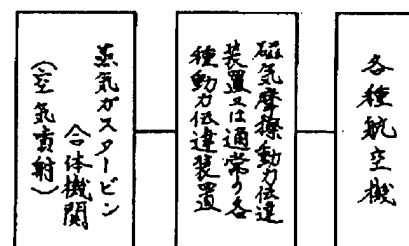 蒸気ガスタービン
合体機関
(空気噴射)
磁気摩擦動力伝達
装置又は通常の各
種動力伝達装置
各種航空機